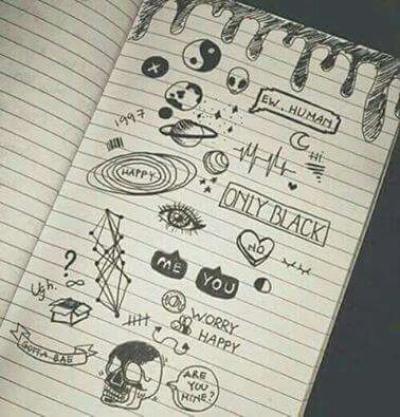 EW. HUMAN
1997
HAPPY
ONLY BLACK
NO
ME
YOU
?
Ugh.
WORRY
HAPPY
GOTTA BAE
ARE
YOU
MINE?